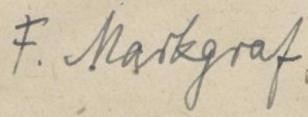 F. Markgraf